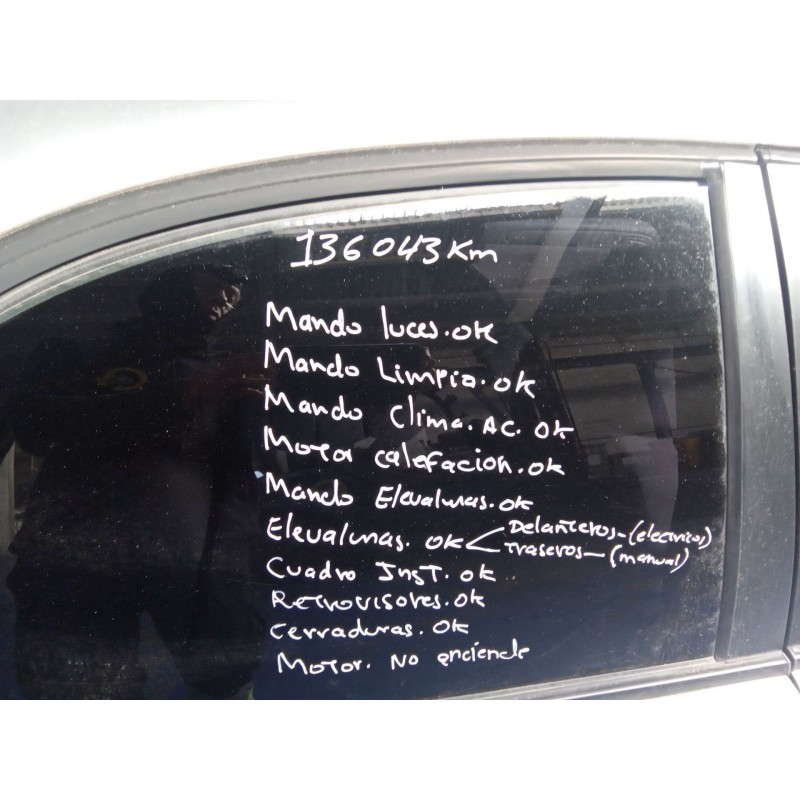 136043 Km
Mando luces. OK
Mando Limpia. OK
Mando Clima. AC. OK
Motor calefacion. OK
Mando Elevalunas. OK
Elevalunas. OK < Delanteros - (electricos)
traseros - (manual)
Cuadro Inst. OK
Retrovisores. OK
Cerraduras. OK
Motor. No enciende